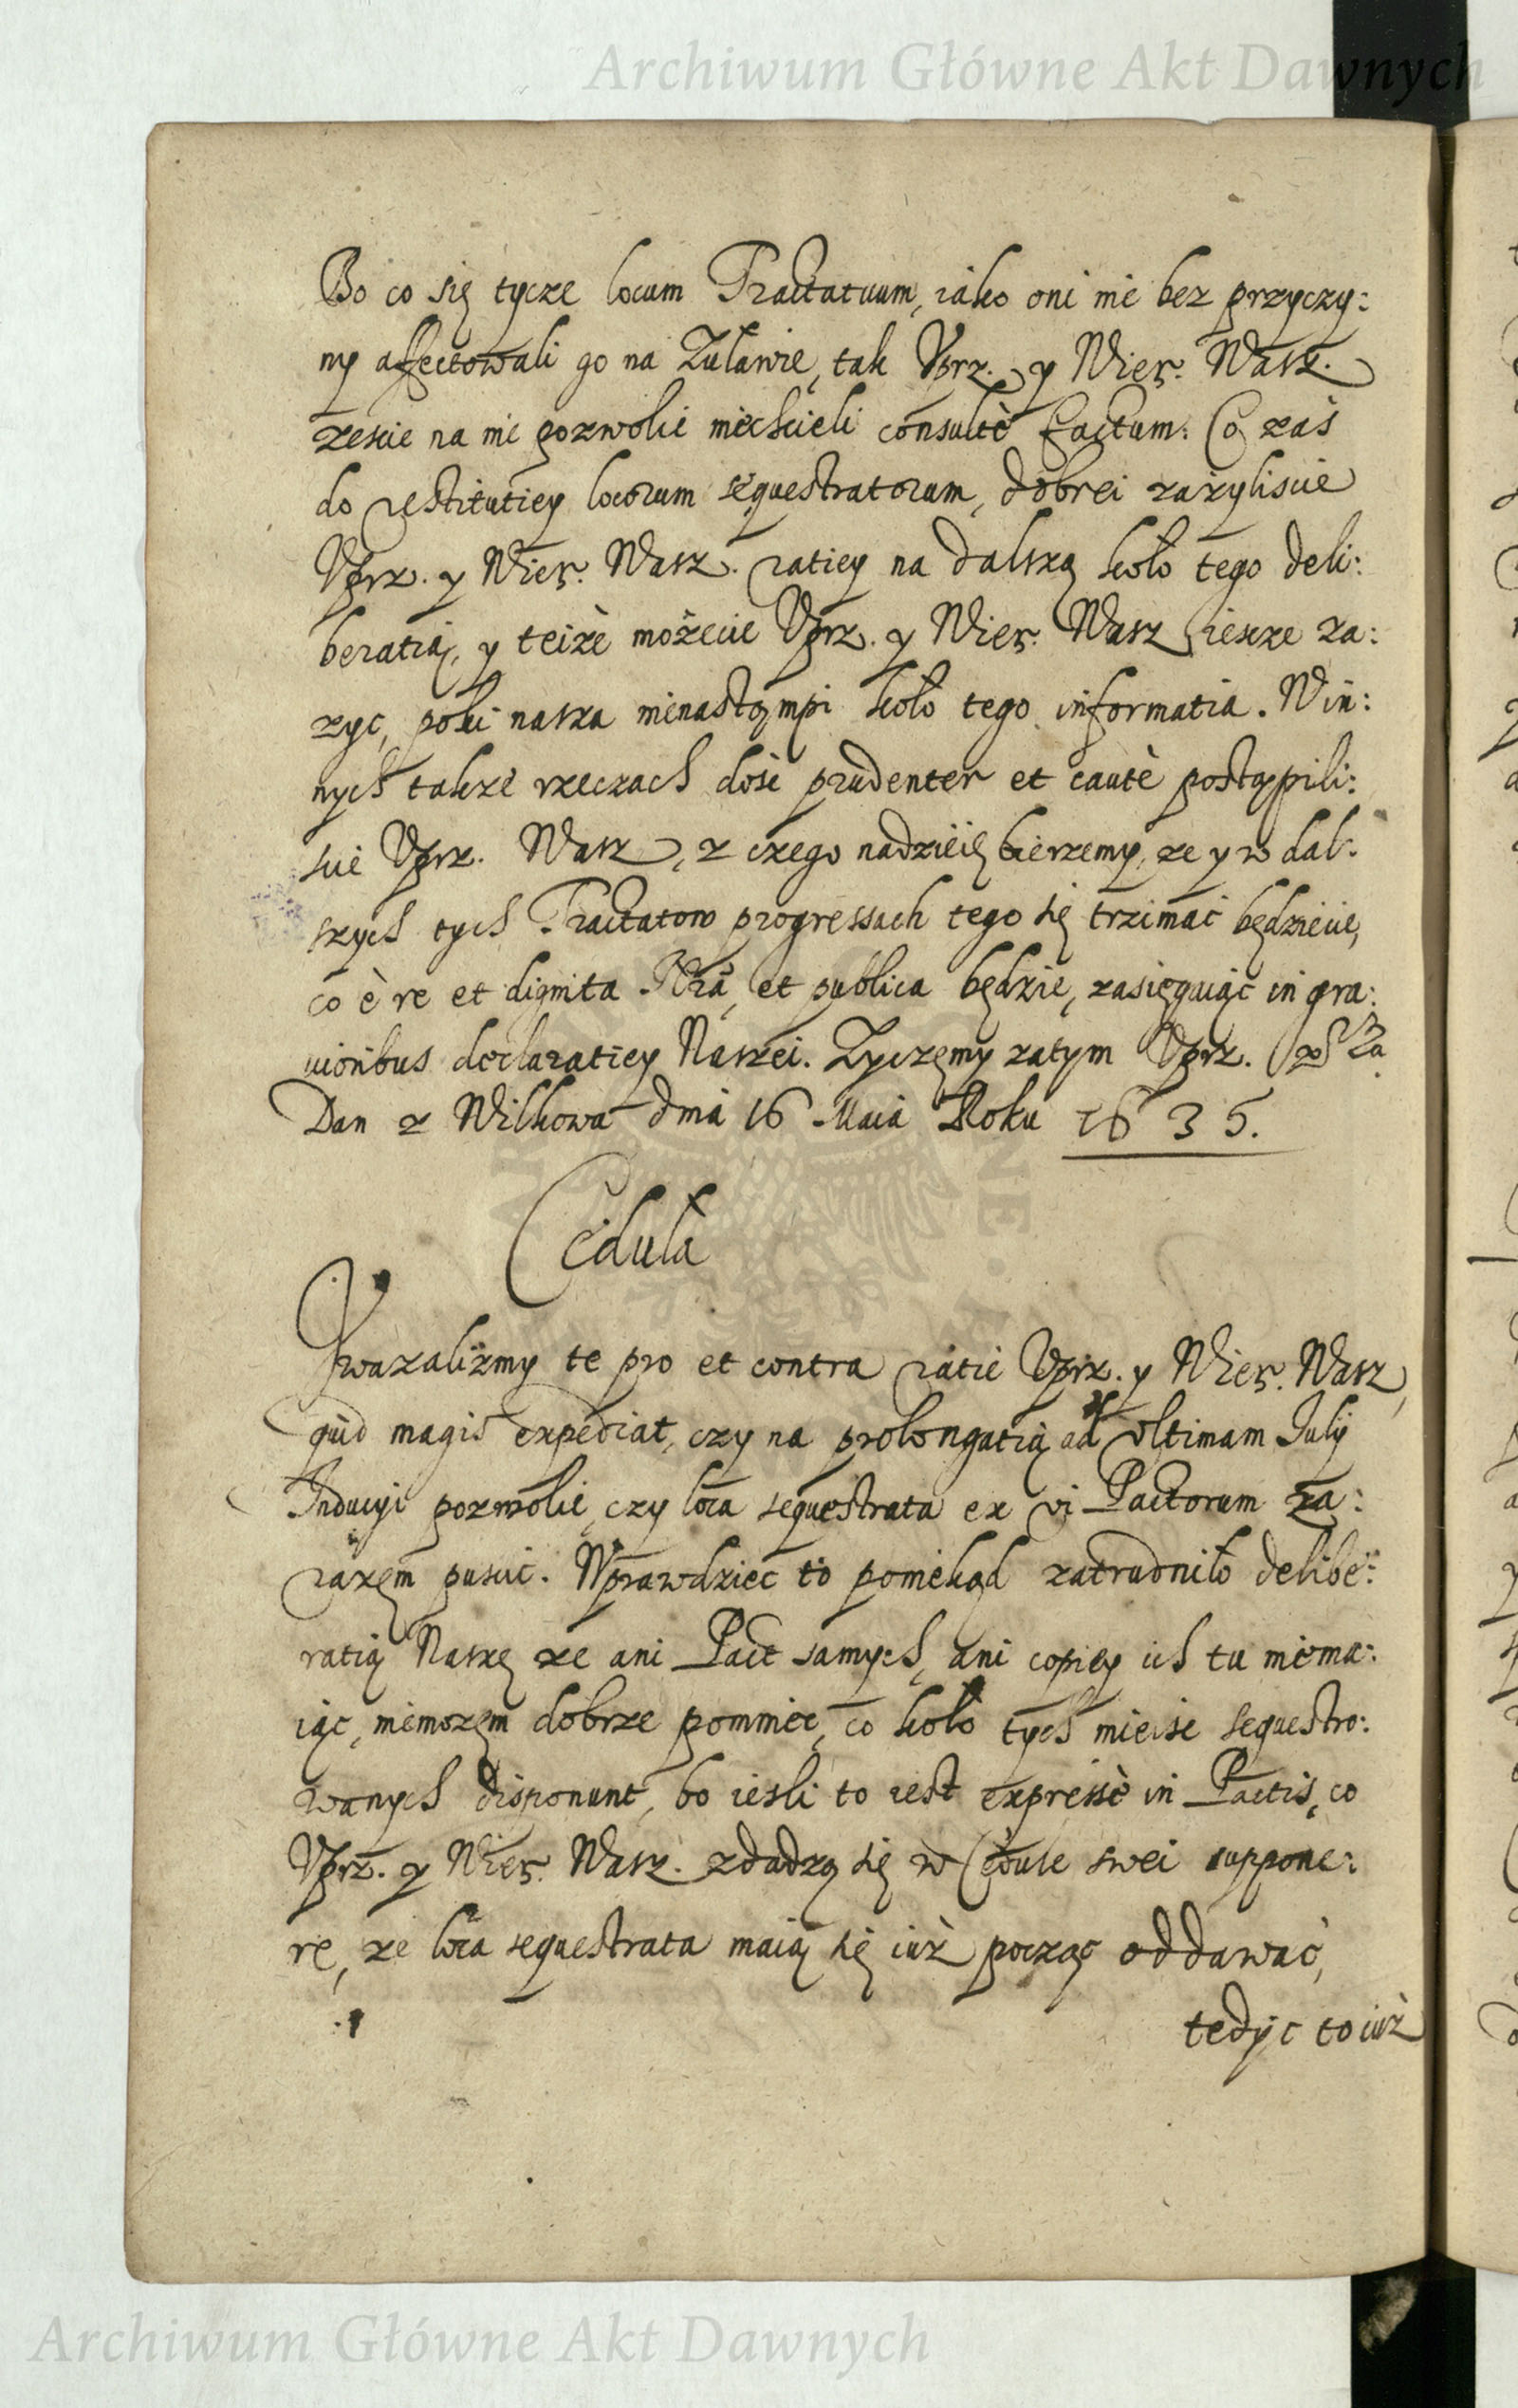 Archiwum Główne Akt Dawnych
Bo co się tycze locum Tractatuum, iako oni nie bez przyczy:
ny affectowali go na Zuławie, tak Vprz. y Wier. Wasz.
zescie na nie pozwolic niechcieli consultè factum. Co zas
do restitutiey locorum sequestratorum, dobrei zazyliscie
Vprz. y Wier. Wasz. ratiey na dalszą koło tego deli:
beratią, y teizè mozecie Vprz. y Wier. Wasz iescze za:
zyc, poki nasza nienastąmpi koło tego informatia. W in:
nych takze rzeczach dosc prudenter et cautè postąpili:
scie Vprz. Wasz, z czego nadzieię bierzemy, ze y w dal:
szych tych Tractatow progressach tego się trzimać będziecie,
co è re et dignita Nrã, et publica będzie, zasięguiąc in gra:
uioribus declaratiey Naszei. Zyczemy zatym Vprz.
Dan z Wilkowa dniá 16 Maia Roku 1635.
Cedula
Vwazalizmy te pro et contra ratie Vprz. y Wier. Wasz,
quid magis expediat, czy na prolongatią ad vltimam Julij
Induciji pozwolic, czy loca sequestrata ex vi Pactorum za:
razem puscic. Wprawdziec to poniekąd zatrudniło delibe:
ratią Naszę ze ani Pact samych, ani copiey ich tu niema:
iąc, niemozem dobrze pomniec, co koło tych miejsc sequestro:
wanych disponunt, bo iesli to iest expressè in Pactis, co
Vprz. y Wier. Wasz. zdadzą się w Cedule swei suppone:
re, ze loca sequestrata maią się iuż począc oddawać,
tedyc to iuż
Archiwum Główne Akt Dawnych